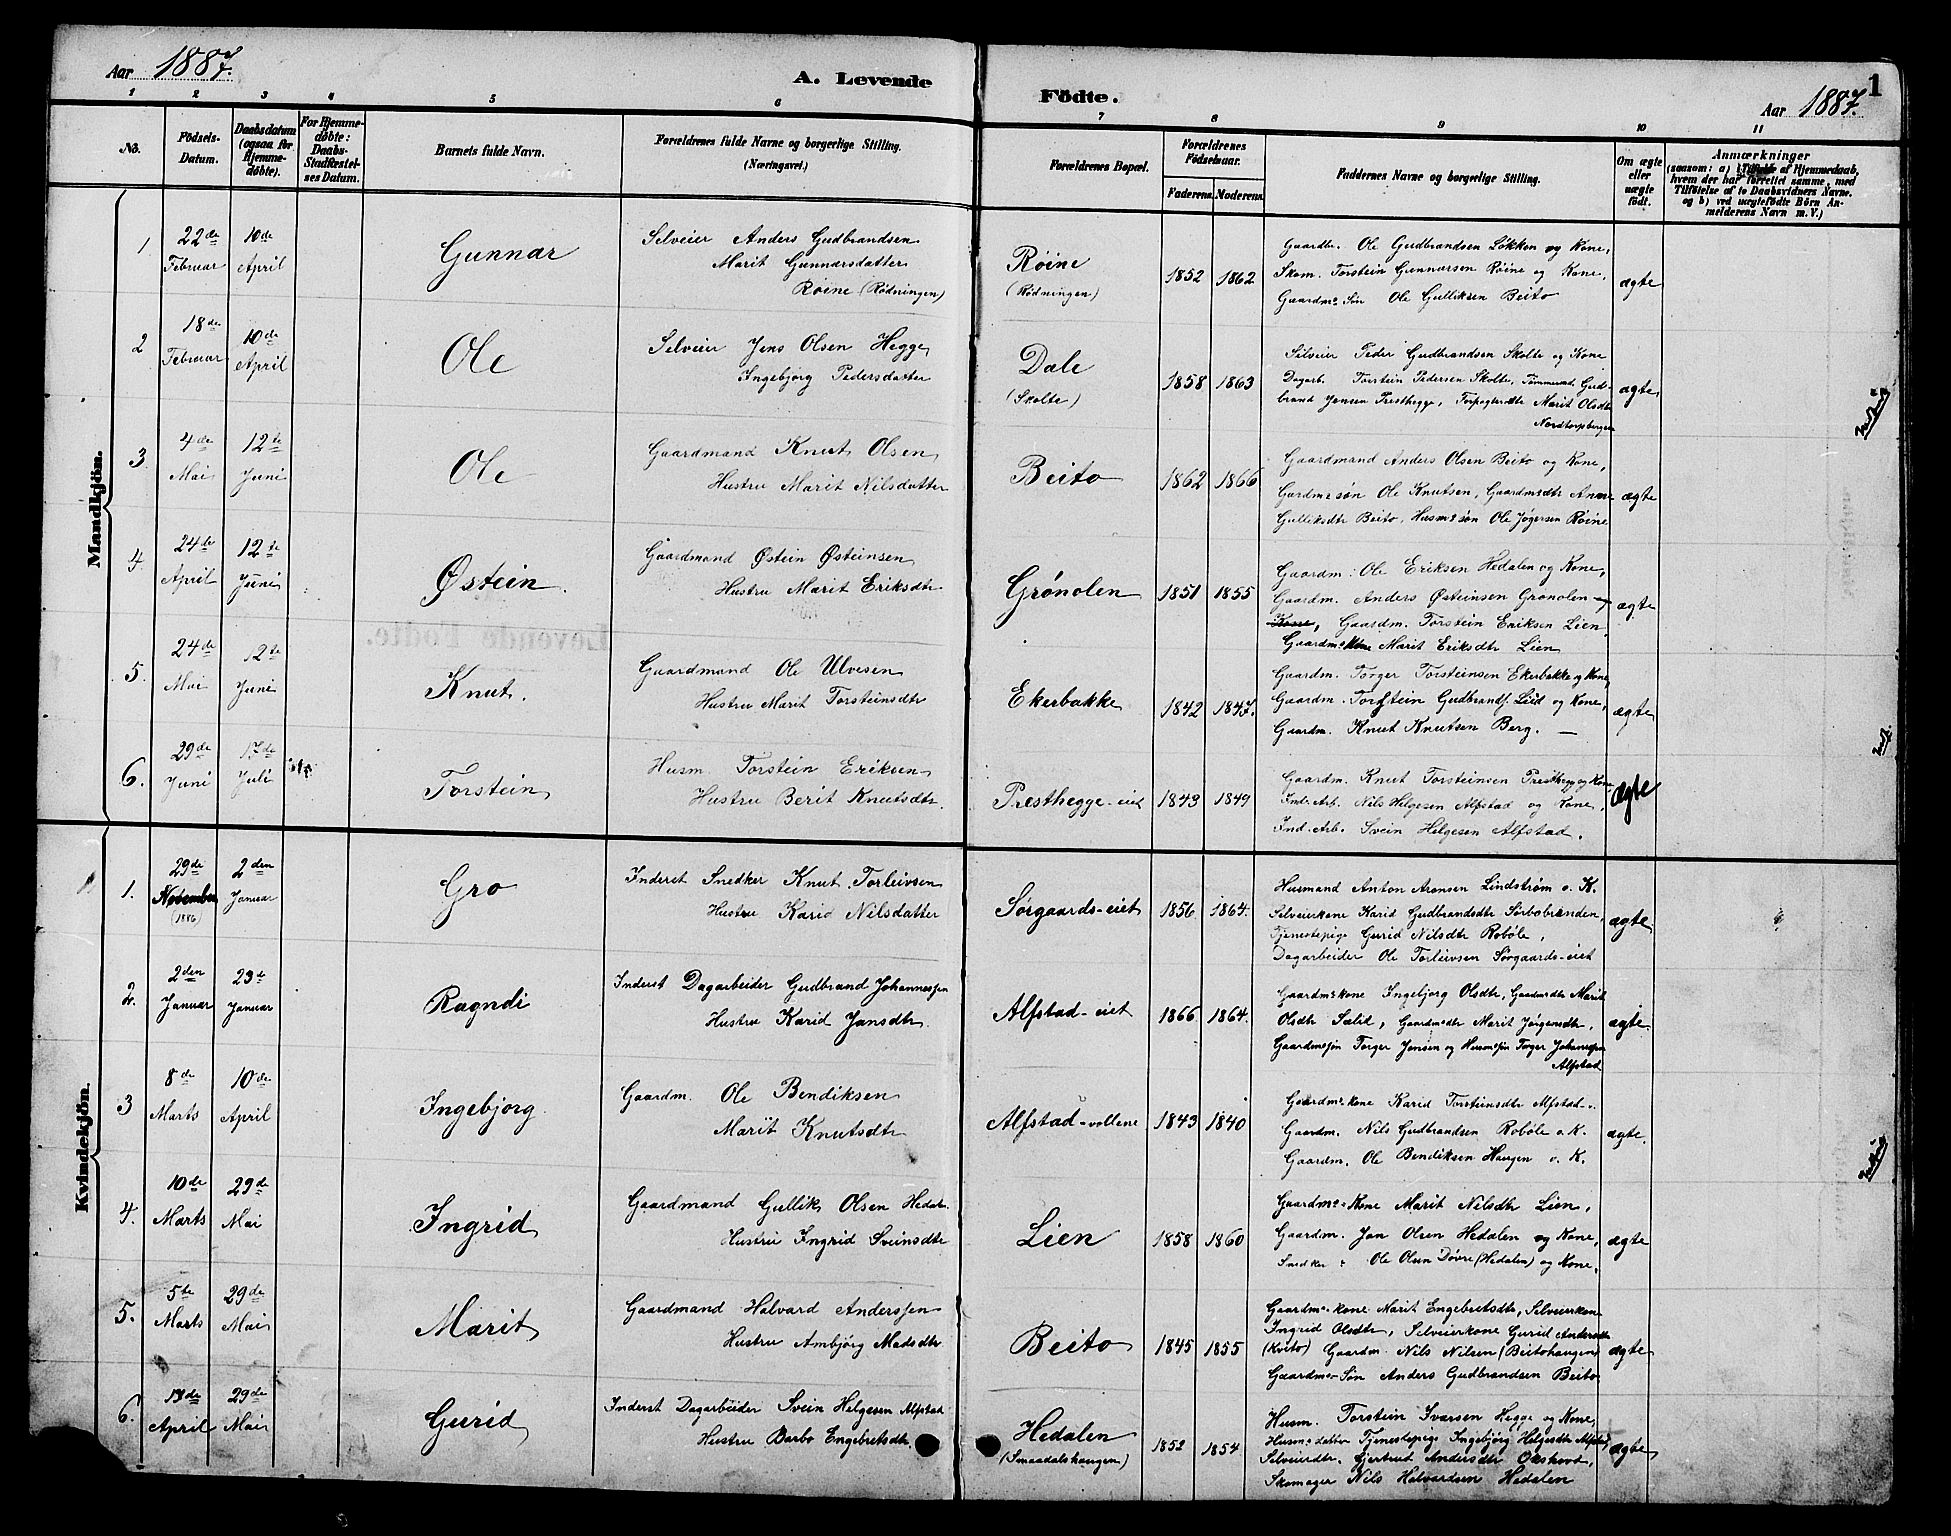 Aar 1887.
A. Levende
Födte.
Aar 1887.
1
1 2 3 4 5 6 7 8 9 10 11
No.
Födsels-
Datum.
Daabsdatum
(ogsaa for
Hjemme-
döbte).
For Hjemme-
döbte:
Daabs-
Stadfæstel-
ses Datum.
Barnets fulde Navn.
Forældrenes fulde Navne og borgerlige Stilling.
(Næringsvei.)
Forældrenes Bopæl.
Forældrenes
Födselsaar.
Faderens. Moderens.
Faddernes Navne og borgerlige Stilling.
Om ægte
eller
uægte
födt.
Anmærkninger
(saasom: a) af Hjemmedaab,
hvem der har forrettet samme, med
Tilföielse af to Daabsvidners Navne.
og b) ved uægtefödte Börn An-
melderens Navn m. V.)
Mandkjön.
1
22de
Februar
10de
April
Gunnar
Selveier Anders Gudbrandsen
Marit Gunnarsdatter
Røine (Rødningen)
Røine
(Rødningen)
1852 1862
Gaardbr. Ole Gudbrandsen Løkken og Kone,
Skom. Torstein Gunnarsen Røine og Kone,
Gaardms Søn Ole Gulliksen Beito
ægte
2
18de
Februar
10de
April
Ole
Selveier Jens Olsen Hegge
Ingebjørg Pedersdatter
Dale
(Skolte)
1858 1863
Selveier Peder Gudbrandsen Skolte og Kone
Dagarb. Torstein Pedersen Skolte, Tømmermd. Gud-
brand Jensen Presthegge, Marit Olsdtr
Nordtorpbergen
ægte
3
4de
Mai
12te
Juni
Ole
Gaardmand Knut Olsen
Hustru Marit Nilsdatter
Beito
1862 1866
Gaardmand Anders Olsen Beito og Kone,
Gardmssøn Ole Knutsen, Gaardmsdtr Anne
Gulliksdtr Beito, Husmssøn Ole Jøgersen Røine
ægte
4.
24de
April
12te
Juni
Østein.
Gaardmand Østein Østeinsen
Hustru Marit Eriksdtr
Grønolen
1851 1855
Gaardm: Ole Eriksen Hedalen og Kone,
Gaardm. Anders Østeinsen Grønolen og
Kone, Gaardm. Torstein Eriksen Lien
Gaardmskone Marit Eriksdtr Lien
ægte
5.
24de
Mai
12te
Juni
Knut.
Gaardmand Ole Ulvesen
Hustru Marit Torsteinsdtr
Ekerbakke
1842 1847.
Gaardm. Torger Torsteinsen Ekerbakke og Kone,
Gaardm. Torstein Gudbrands. Lied og Kone,
Gaardm. Knut Knutsen Berg. —
ægte
6.
29de
Juni
17de
Juli
Torstein
Husm. Torstein Eriksen
Hustru Berit Knutsdtr.
Presthegge-eiet
1843 1849
Gaardm. Knut Torsteinsen Presthegg og Kone
Ind. Arb. Nils Helgesen Alfstad og Kone,
Ind. Arb. Svein Helgesen Alfstad.
ægte
Kvindekjön.
1.
29de
November
(1886)
2den
Januar
Gro
Inderst Snedker Knut Torleivsen
Hustru Karid Nilsdatter
Sørgaards-eiet
1856 1864.
Husmand Anton Aronsen Lindstrøm o. K.
Selveierkone Karid Gudbrandsdtr Sørbobraaden,
Tjenestepige Gurid Nilsdtr Robøle,
Dagarbeider Ole Torleivsen Sørgaards-eiet
ægte
2.
2den
Januar
23de
Januar
Ragndi
Inderst Dagarbeider Gudbrand Johannessen
Hustru Karid Jansdtr.
Alfstad-eiet
1866 1864.
Gaardmskone Ingebjørg Olsdtr, Gaardmdtr Marit
Olsdtr Sælid, Gaardmsdtr Marit Jørgensdtr,
Gaardmssøn Torger Jensen og Husmssøn Torger Johanessen
Alfstad
ægte
3
8de
Marts
10de
April
Ingebjørg.
Gaardm. Ole Bendiksen
Marit Knutsdtr
Alfstad-vollene
1843 1840
Gaardmskone Karid Torsteinsdtr Alfstad-v.
Gaardm. Nils Gudbrandsen Robøle o. K.
Gaardm. Ole Bendiksen Haugen o. K.
ægte.
4.
10de
Marts
29de
Mai
Ingrid
Gaardmand Gullik Olsen Hedal.
Hustru Ingrid Sveinsdtr
Lien
1858 1860
Gaardms Kone Marit Nilsdtr Lien,
Gaardm. Jan Olsen Hedalen og Kone,
Snedker: Ole Olsen Døvre (Hedalen) og Kone,
ægte
5.
5te
Marts
29de
Mai
Marit
Gaardmand Halvard Anderssen
Hustru Ambjørg Madsdtr
Beito
1845 1855
Gaardms-kone Marit Engebretsdtr, Selveierkone
Ingrid Olsdtr, Selveierkone Gurid Andersdtr
(Kvito) Gaardm. Nils Nilsen (Beitohaugen)
Gaardms-Søn Anders Gudbrandsen Beito
ægte
6.
13de
April
29de
Mai
Gurid
Inderst Dagarbeider Svein Helgesen Alfstad
Hustru Barbo Engebretsdtr
Hedalen
(Smaadalshaugen)
1852 1854
Husm. Torstein Ivarsen Hegge og Kone,
Husmsdatter Tjenestepige Ingebjørg Helgesdtr Alfstad
Selveierdtr. Gjertrud Andersdtr Okshovd,
Skomager Nils Halvardsen Hedalen
ægte